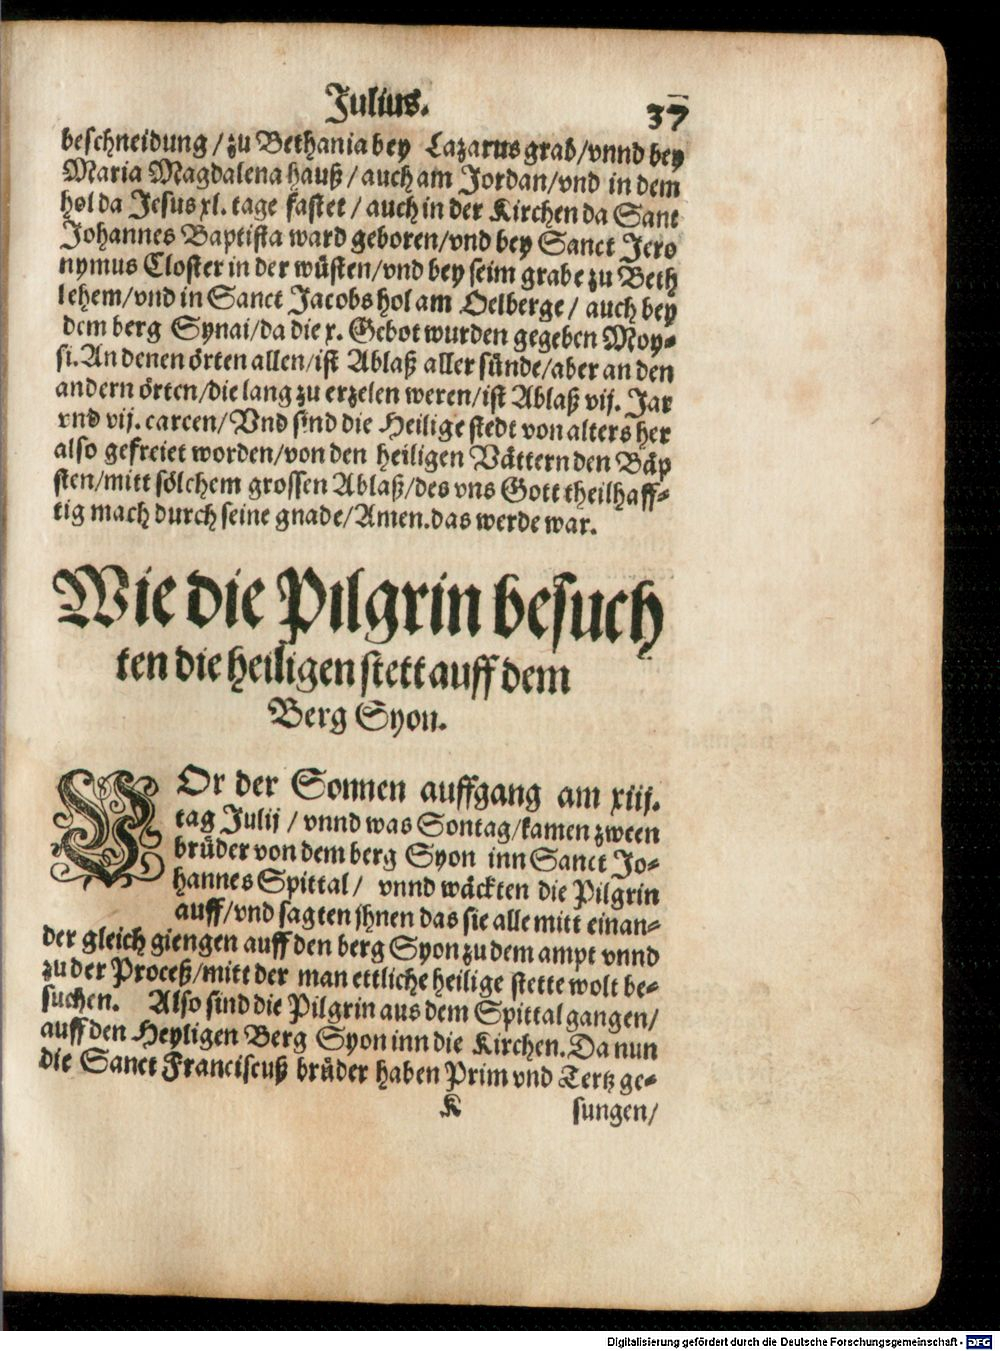 Julius. 37
beschneidung / zu Bethania bey Lazarus grab/vnnd bey
Maria Magdalena hauß / auch am Jordan/vnd in dem
hol da Jesus xl. tage fastet / auch in der Kirchen da Sant
Johannes Baptista ward geboren/vnd bey Sanct Jero
nymus Closter in der wüsten/vnd bey seim grabe zu Beth
lehem/vnd in Sanct Jacobs hol am Oelberge / auch bey
dem berg Synai/da die x. Gebot wurden gegeben Moy-
si. An denen örten allen/ist Ablaß aller sünde/aber an den
andern örten/die lang zu erzelen weren/ist Ablaß vij. Jar
vnd vij. carcen/ Vnd sind die Heilige stedt von alters her
also gefreiet worden/von den heiligen Vättern den Bäp
sten/mitt sölchem grossen Ablaß/des vns Gott theilhaff-
tig mach durch seine gnade/Amen.das werde war.
Wie die Pilgrin besuch
ten die heiligen stett auff dem
Berg Syon.
VOr der Sonnen auffgang am xiij.
tag Julij / vnnd was Sontag/kamen zween
brüder von dem berg Syon inn Sanct Jo-
hannes Spittal/ vnnd wäckten die Pilgrin
auff/vnd sagten jhnen das sie alle mitt einan-
der gleich giengen auff den berg Syon zu dem ampt vnnd
zu der Proceß/mitt der man ettliche heilige stette wolt be-
suchen. Also sind die Pilgrin aus dem Spittal gangen/
auff den Heyligen Berg Syon inn die Kirchen. Da nun
die Sanct Franciscuß brüder haben Prim vnd Tertz ge-
K sungen/
Digitalisierung gefördert durch die Deutsche Forschungsgemeinschaft - DFG